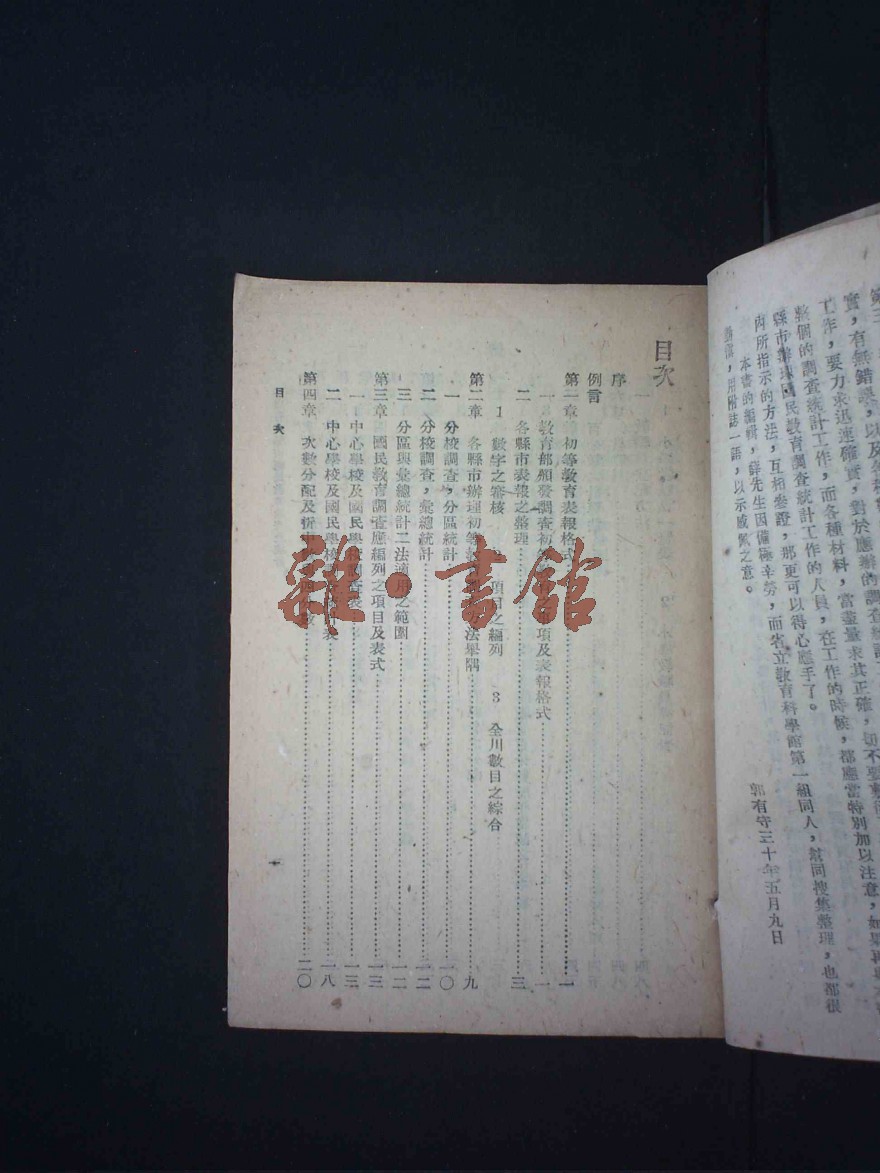 實，有無錯誤，以及各
工作，要力求迅速確實，對於應辦的調查統計
整個的調查統計工作，而各種材料，當盡量求其正確，切不要
縣市辦理國民教育調查統計工作的人員，在工作的時候，都應當特別加以注意，如果再與
內所指示的方法，互相參證，那更可以得心應手了。
本書的編輯，薛先生因備極辛勞，而省立教育科學館第一組同人，幫同搜集整理，也都很
，用附誌一語，以示感佩之意。
郭有守三十年五月九日
目次
序
例言
第一章 初等教育表報格式……一
一 教育部頒發調查初等 項及表報格式……一
二 各縣市表報之整理……三
1 數字之審核 2 項目之編列 3 全川數目之綜合
第二章 各縣市辦理初等 方法舉隅……九
一 分校調查，分區統計……一〇
二 分校調查，彙總統計……一二
三 分區與彙總統計二法適用之範圍……一二
第三章 國民教育調查應編列之項目及表式……一三
一 中心學校及國民學校調查表……一三
二 中心學校及國民學校 表……一八
第四章 次數分配及 ……二〇
目次
一
雜·書館